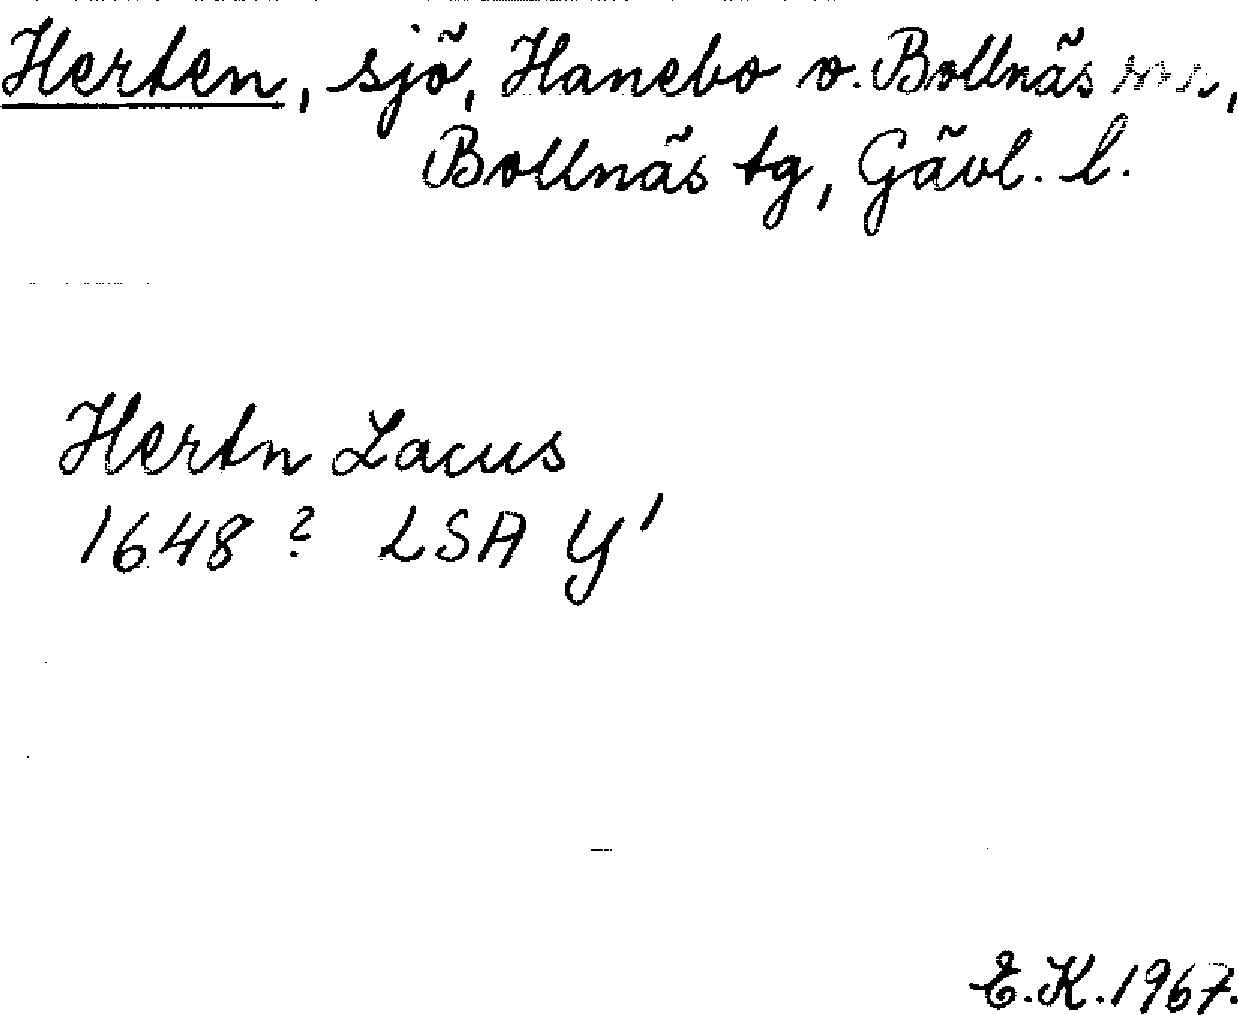 Herten, sjö, Hanebo o. Bollnäs snr,
Bollnäs tg, Gävl. l.
Hertn Lacus
1648 ? LSA Y¹
E.K. 1967.